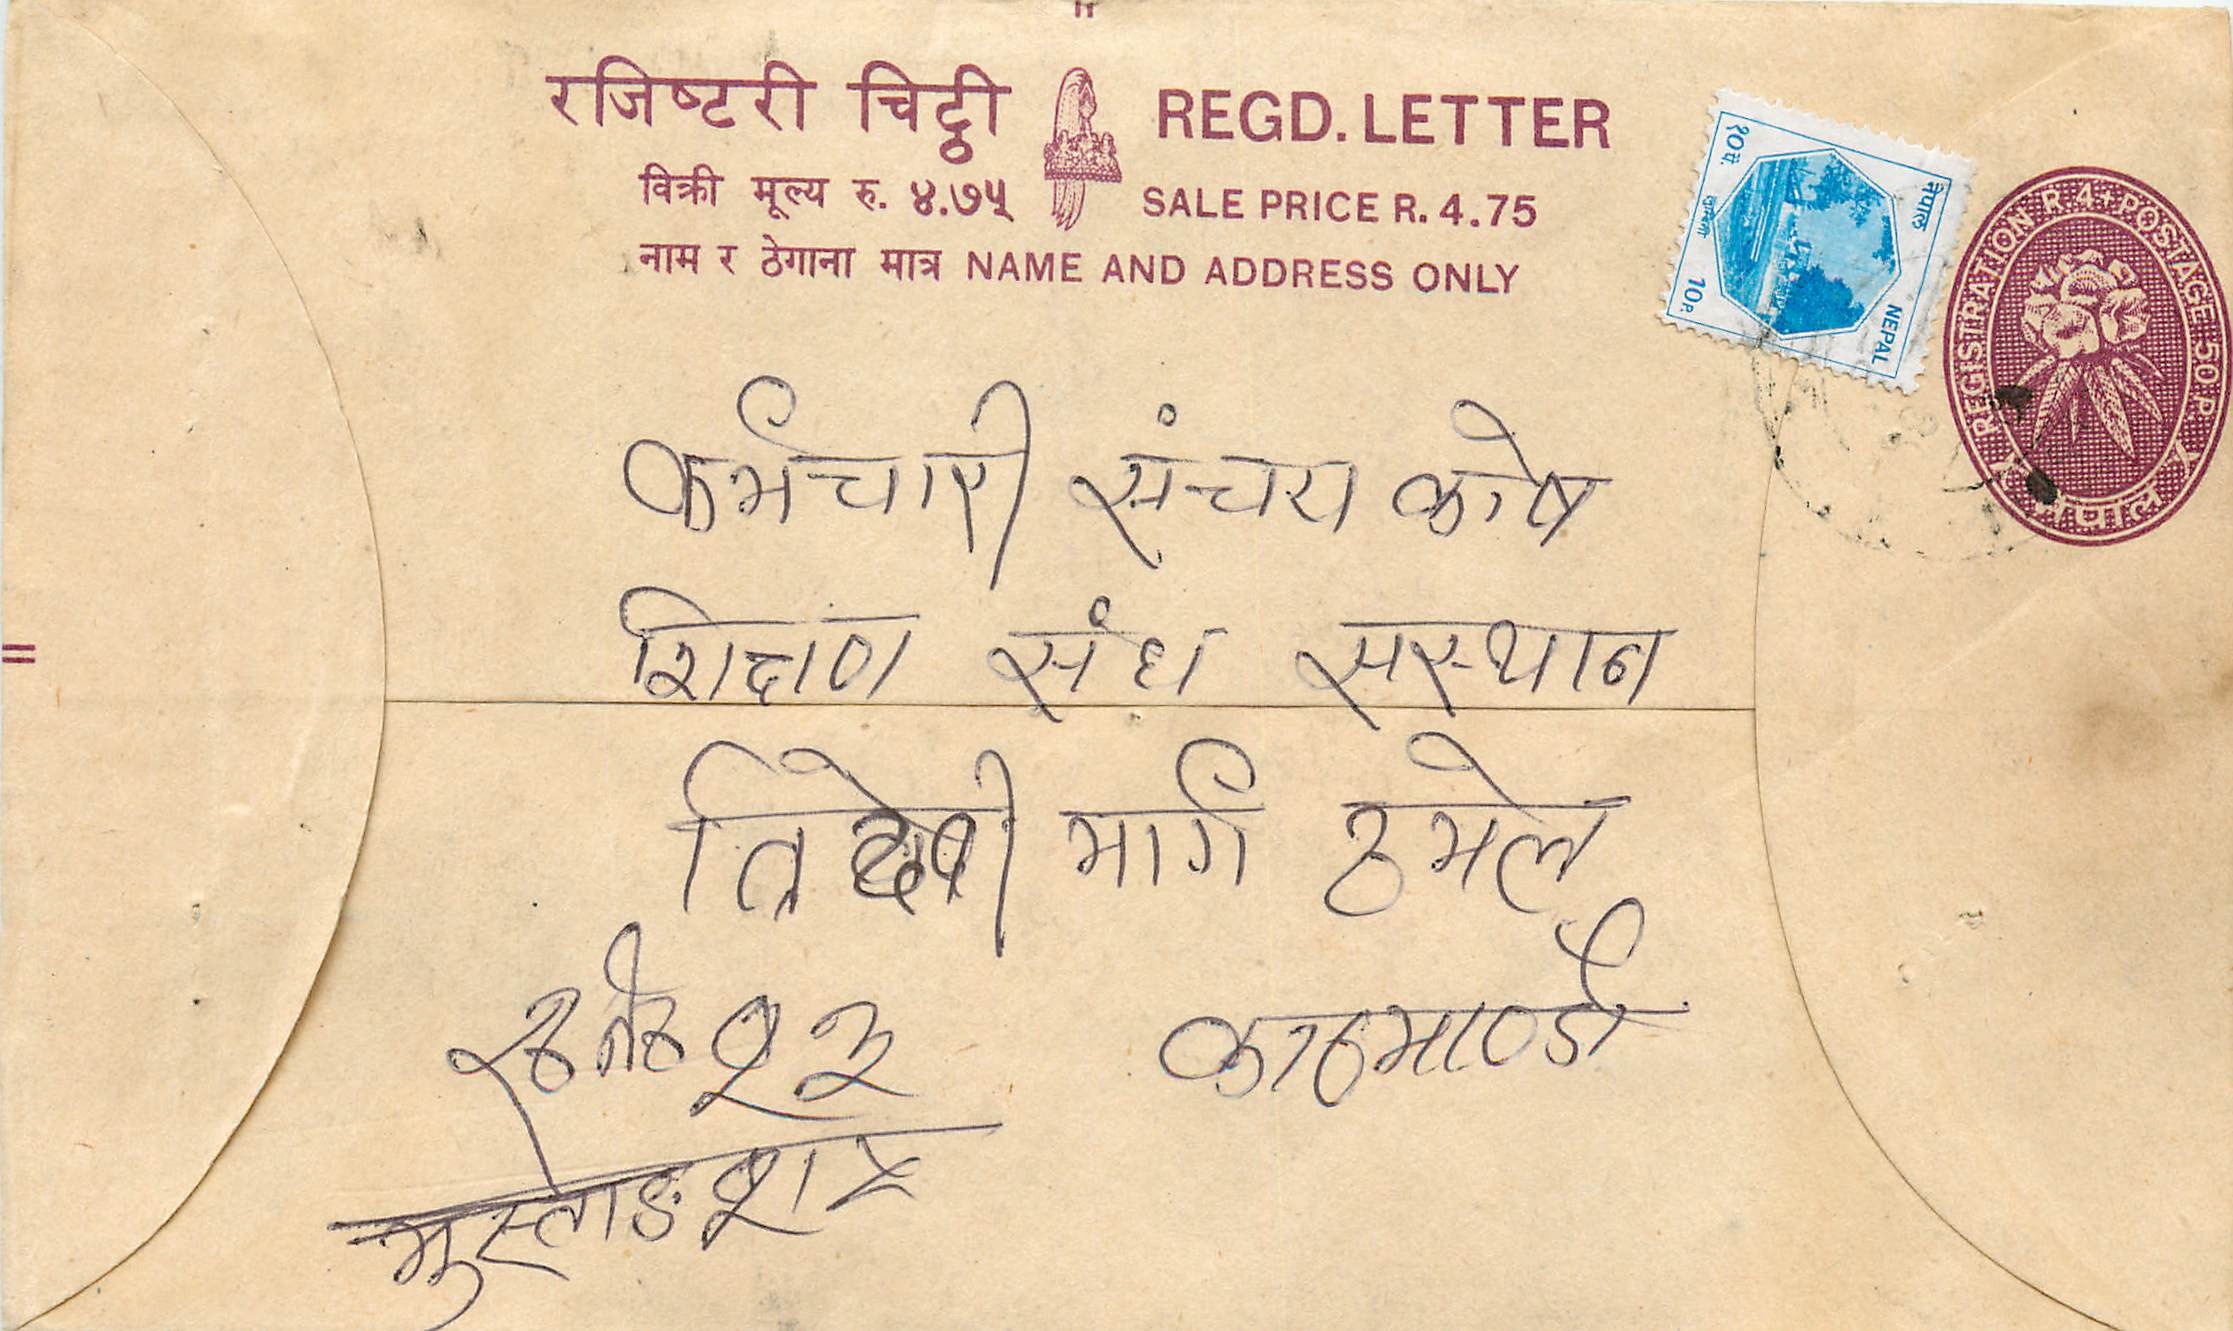 रजिष्टरी चिट्ठी REGD. LETTER
विक्री मूल्य रु. ४.७५ SALE PRICE R. 4.75
नाम र ठेगाना मात्र NAME AND ADDRESS ONLY
१०पै. नेपाल
10P. NEPAL
REGISTRATION R 4+POSTAGE 50 P.
नेपाल
कर्मचारी संचय कोष
शिक्षण संघ सस्थान
त्रिदेवी मार्ग ठमेल
काठमाण्डौ
मुस्ताङ